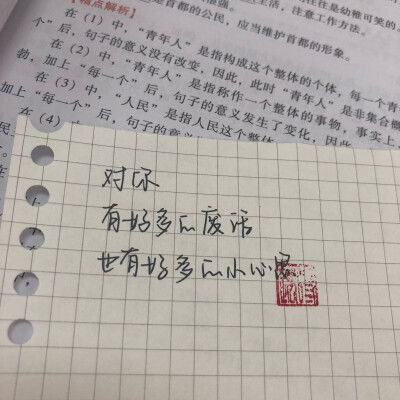 【精点解析】
是首都的公民，应当维护首都的形象。
在（1）中，“青年人”是指构成这个整体的个体，每一个青
个”后，句子的意义没有改变，因此，此时“青年人”是非集合概
在（2）中，“青年人”是指称作一个整体的事物，事实上，
勃，加上“每一个”后，句子的意义发生了变化，因此
在（3）中，“人民”是指人民这个整体
加上“每一个”后，句子的意
在（4）
对你
有好多的废话
也有好多的小心思